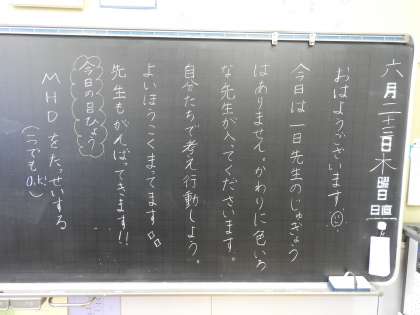 六月二十三日木曜日
日直
おはようございます
今日は一日先生のじゅぎょう
はありません。かわりに色いろ
な先生が入ってくださいます。
自分たちで考え行動しよう。
よいほうこくまってます
先生もがんばってきます!!
今日の目ひょう
MHDをたっせいする
(1つでもO.K!)